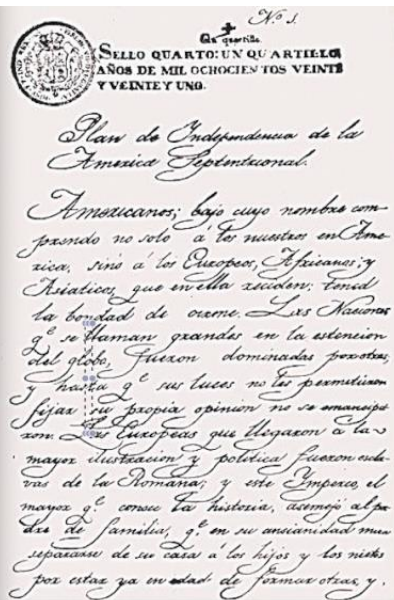 Nº 1.
Un quartillo
SELLO QUARTO: UN QUARTILLO
AÑOS DE MIL OCHOCIENTOS VEINTE
Y VEINTE Y UNO.
Plan de Independencia de la
America Septentrional.
Americanos; bajo cuyo nombre com
prendo no solo á los nuestros en Ame-
rica, sinó á los Europeos, Africanos; y
Asiaticos, que en ella reciden: tened
la bondad de oirme. Las Naciones
q.e se llaman grandes en la estencion
del globo, fueron dominadas por otras,
y hasta q.e sus luces no les permitieron
fijar su propia opinion no se emancipa
ron. Las Europeas que llegaron á la
mayor ilustracion y politica fueron escla
vas de la Romana; y este Ymperio, el
mayor q.e conoce la historia, asemejó al pa
dre de familia, q.e en su ancianidad mira
separarse de su casa a los hijos y los nietos
por estar ya en edad de formar otras, y